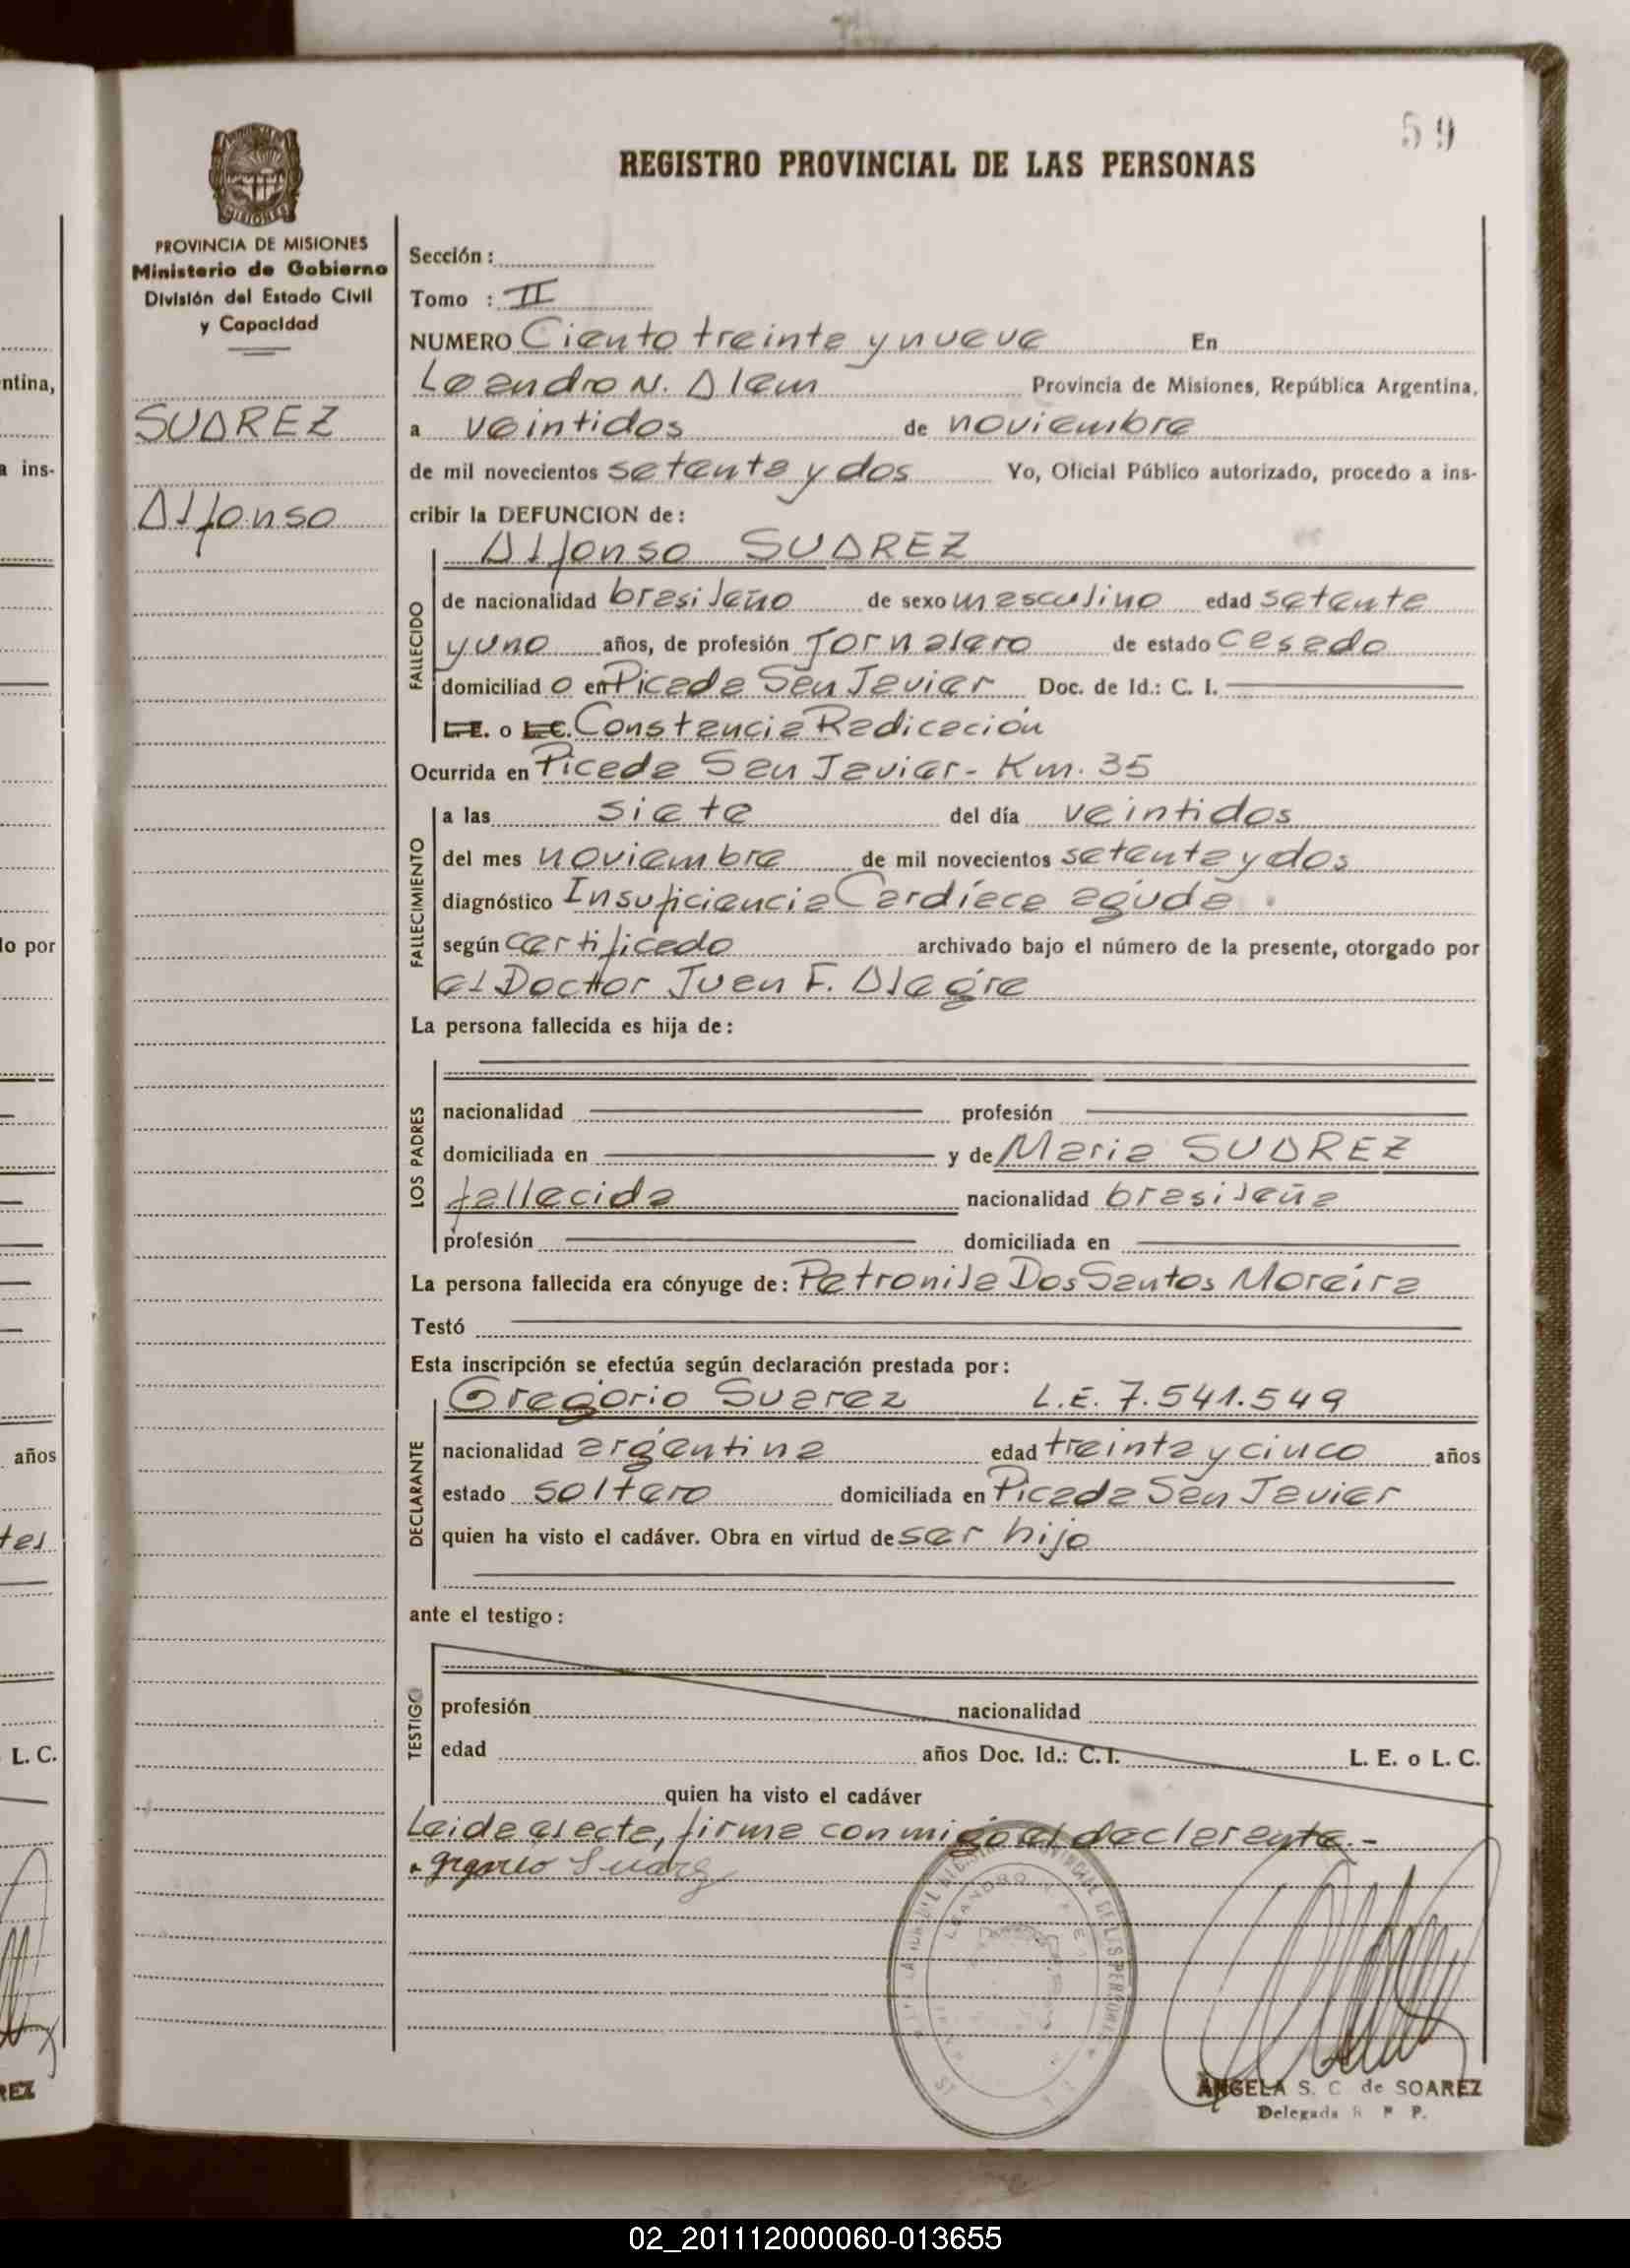 59
REGISTRO PROVINCIAL DE LAS PERSONAS
PROVINCIA DE MISIONES
Ministerio de Gobierno
División del Estado Civil
y Capacidad
SUAREZ
Alfonso
Sección :
Tomo : II
NUMERO Ciento treinta y nueve En
Leandro N. Alem Provincia de Misiones, República Argentina,
a veintidos de noviembre
de mil novecientos setenta y dos Yo, Oficial Público autorizado, procedo a ins-
cribir la DEFUNCION de :
Alfonso SUAREZ
FALLECIDO
de nacionalidad brasileño de sexo masculino edad setenta
y uno años, de profesión Jornalero de estado casado
domiciliad o en Picada San Javier Doc. de Id.: C. I.
L.E. o L.C. Constancia Radicación
Ocurrida en Picada San Javier - Km. 35
FALLECIMIENTO
a las siete del día veintidos
del mes noviembre de mil novecientos setenta y dos
diagnóstico Insuficiencia Cardíaca aguda
según certificado archivado bajo el número de la presente, otorgado por
el Doctor Juan F. Alegre
La persona fallecida es hija de :
LOS PADRES
nacionalidad profesión
domiciliada en y de Maria SUAREZ
fallecida nacionalidad brasileña
profesión domiciliada en
La persona fallecida era cónyuge de : Petronila Dos Santos Moreira
Testó
Esta inscripción se efectúa según declaración prestada por :
Gregorio Suarez L.E. 7.541.549
DECLARANTE
nacionalidad argentina edad treinta y cinco años
estado soltero domiciliada en Picada San Javier
quien ha visto el cadáver. Obra en virtud de ser hijo
ante el testigo :
TESTIGO
profesión nacionalidad
edad años Doc. Id.: C. I. L. E. o L. C.
quien ha visto el cadáver
Leida el acta, firma conmigo el declarante.-
Suarez
LEANDRO
ANGELA S. C. de SOAREZ
Delegada R P P.
ntina,
a ins-
lo por
años
tes
L. C.
REZ
02_201112000060-013655